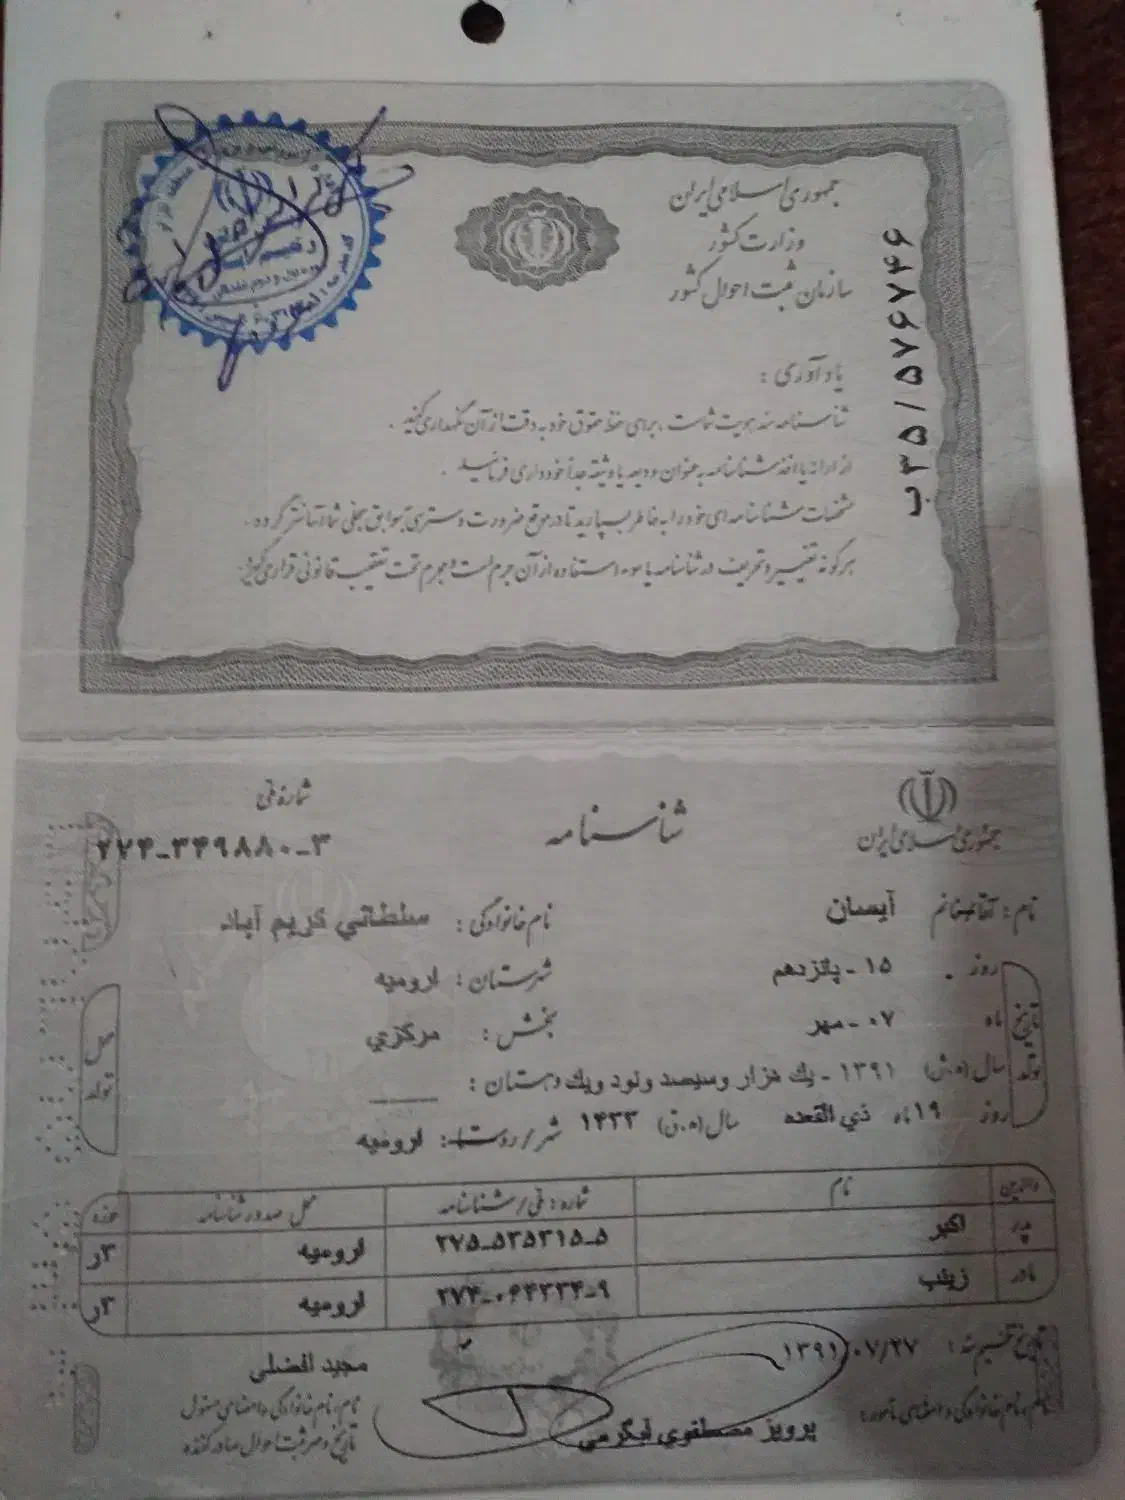 جمهوری اسلامی ایران
وزارت کشور
سازمان ثبت احوال کشور
ب۳۵ / ۵۷۶۷۴۶
یادآوری :
شناسنامه سند هویت شماست ، برای حفظ حقوق خود به دقت از آن نگهداری کنید .
از ارائه یا اخذ شناسنامه به عنوان ودیعه یا وثیقه جداً خودداری فرمائید .
مشخصات شناسنامه ای خود را به خاطر بسپارید تا در موقع ضرورت دسترسی به سوابق سجلی شما آسانتر گردد .
هرگونه تغییر و تحریف در شناسنامه یا سوء استفاده از آن جرم است و مجرم تحت تعقیب قانونی قرار می گیرد .
جمهوری اسلامی ایران
شناسنامه
شماره ملی
۲۷۴-۳۴۹۸۸۰-۳
نام : آقا/خانم آیسان
نام خانوادگی : سلطاني کریم آباد
تاریخ تولد
روز ۱۵ - پانزدهم
محل تولد
شهرستان : ارومیه
ماه ۰۷ - مهر
بخش : مرکزي
سال (ه.ش) ۱۳۹۱ - یك هزار وسیصد ونود ویك
دهستان :
روز ۱۹ ماه ذي القعده سال (ه.ق) ۱۴۳۳
شهر/روستا : ارومیه
والدین نام شماره : ملی / شناسنامه محل صدور شناسنامه حوزه
پدر اکبر ۲۷۵-۵۲۵۳۱۵-۵ ارومیه ۳ر
مادر زینب ۲۷۴-۰۶۴۳۳۴-۹ ارومیه ۳ر
تاریخ تنظیم سند : ۱۳۹۱/۰۷/۲۷
مجید افضلی
نام ، نام خانوادگی و امضای مأمور :
پرویز مصطفوي
نام ، نام خانوادگی و امضای مسئول
تاریخ و مهر ثبت احوال صادرکننده